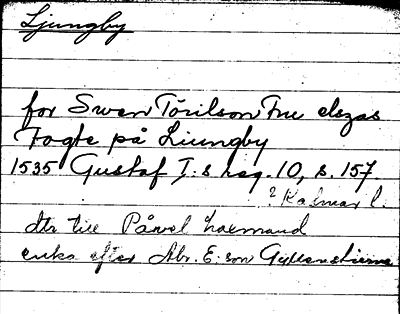 Ljungby
for Swen Törilson Fru elszas
Fogte på Liungby
1535 Gustaf I.s reg. 10, s. 157.
? Kalmar l.
dtr till Påvel
enka efter Abr. E. son Gyllenstierna